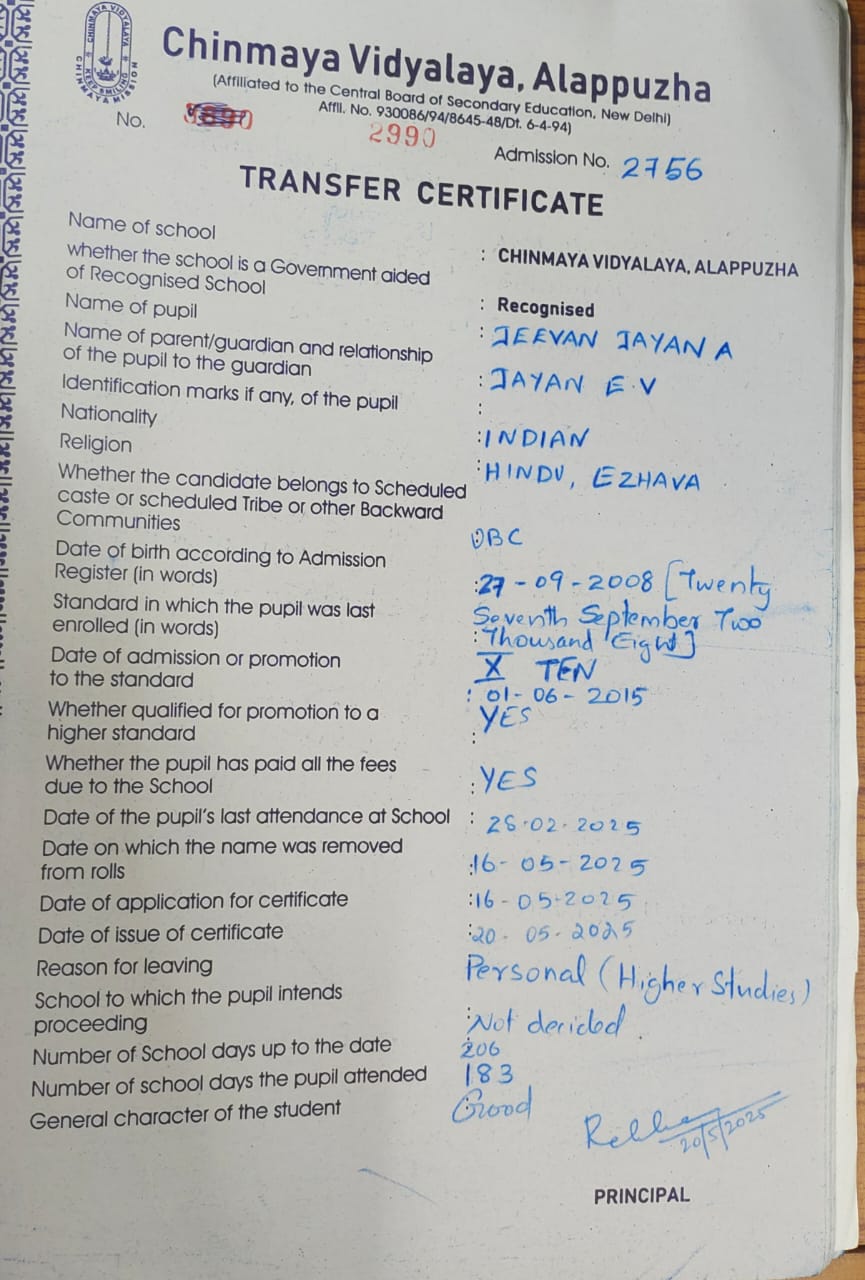 CHINMAYA VIDYALAYA
KEEP SMILING
CHINMAYA MISSION
Chinmaya Vidyalaya, Alappuzha
(Affiliated to the Central Board of Secondary Education, New Delhi)
Affil. No. 930086/94/8645-48/Dt. 6-4-94)
No. 2990
Admission No. 2756
TRANSFER CERTIFICATE
Name of school : CHINMAYA VIDYALAYA, ALAPPUZHA
whether the school is a Government aided
of Recognised School : Recognised
Name of pupil : JEEVAN JAYAN A
Name of parent/guardian and relationship
of the pupil to the guardian : JAYAN E.V
Identification marks if any, of the pupil :
Nationality : INDIAN
Religion : HINDU, EZHAVA
Whether the candidate belongs to Scheduled
caste or scheduled Tribe or other Backward
Communities : OBC
Date of birth according to Admission : 27-09-2008 [Twenty
Register (in words) Seventh September Two
Thousand Eight]
Standard in which the pupil was last
enrolled (in words) : X TEN
Date of admission or promotion
to the standard : 01-06-2015
Whether qualified for promotion to a
higher standard : YES
Whether the pupil has paid all the fees
due to the School : YES
Date of the pupil's last attendance at School : 28.02.2025
Date on which the name was removed
from rolls : 16-05-2025
Date of application for certificate : 16-05-2025
Date of issue of certificate : 20-05-2025
Reason for leaving Personal (Higher Studies)
School to which the pupil intends
proceeding : Not decided
Number of School days up to the date 206
Number of school days the pupil attended 183
General character of the student : Good
20/5/2025
PRINCIPAL